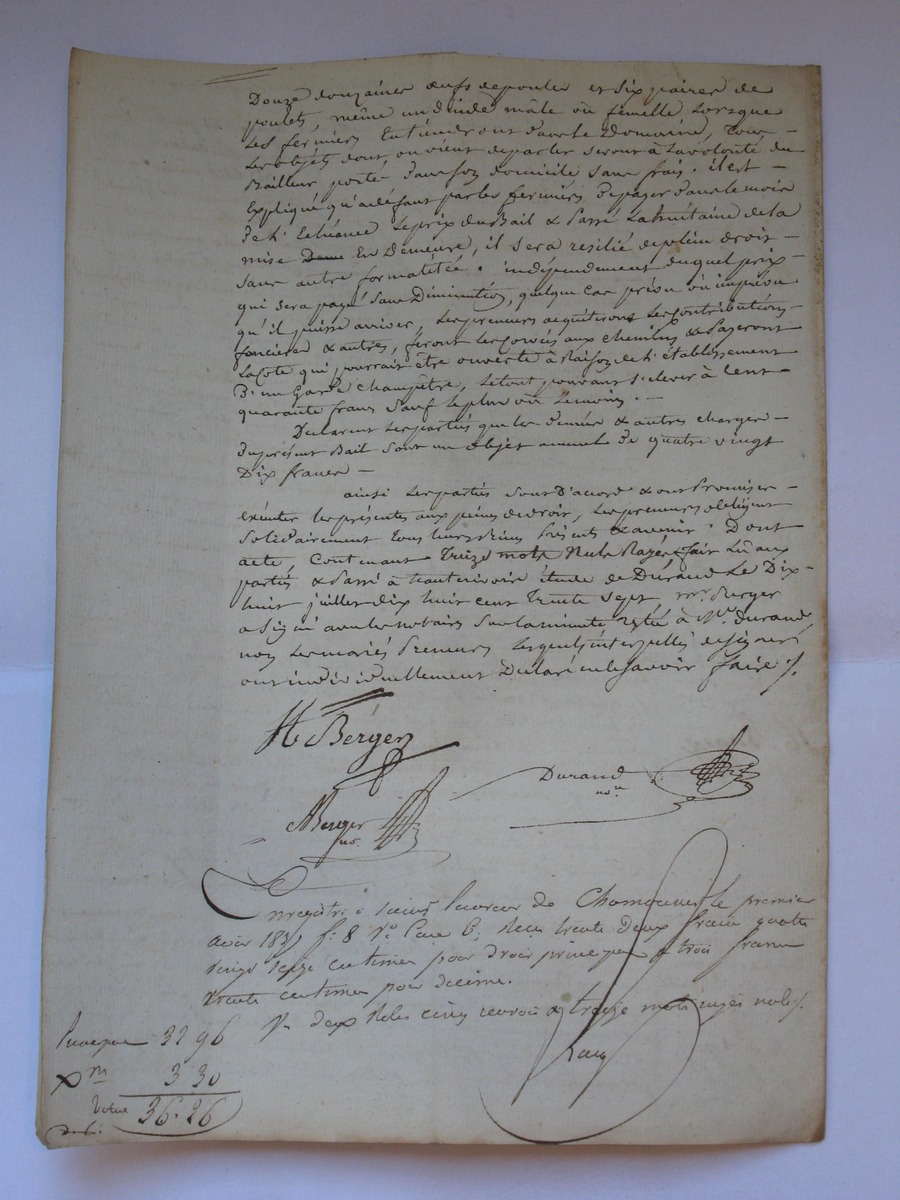 Douze douzaines œufs de poules et six paires de
poulets, même un dinde mâle ou femelle lorsque
Les fermiers Entiendront dans le Domaine, Tous
Les objets dont on vient de parler seront à la volonté du
Bailleur porté dans son domicile sans frais. il est
Expliqué qu'a défaut par les fermiers De payer dans le mois
De l'Echéance Le prix du Bail & Passé La huitaine de la
mise Deme En Demeure, il sera resilié de plein droit
sans autre formalitée. indépendement duquel prix
qui sera payé sans Diminution, quelque cas prévu ou imprévu
qu'il puisse arriver, Les preneurs acquitteront Les Contributions
foncières & autres, feront Les corvées aux chemins & Payeront
La Cote qui pourrait être ouverte à Raison de l'établissement
D'un Garde Champêtre, Le tout pouvant s'elever à Cent
quarante francs Sauf Le plus ou Le moins.
Déclarent Les parties que les Denrées & autres charges
Du présent Bail sont un objet annuel De quatre vingt
Dix francs
ainsi Les parties sont D'acord & ont Promis
exécuter les présentes aux peines de droit, Les preneurs obligent
solidairement tous leurs biens Présents & avenir. Dont
acte, Contenant Treize mots Nuls Rayés fait Lu aux
parties & Passé à étude de Durand Le Dix
huit juillet dix huit cent Trente Sept mr. Berger
a Signé avec les notaires Sur la minute restée à Me. Durand,
non Les mariés Preneurs Lesquels interpellés de signer
ont individuellement Déclaré ne le savoir faire /.
H Berger
Durand
nore
Berger
no.
Enregistré à Saint de Chamounix le premier
août 1837 fo 8 Vo Case 6; Reçu trente deux francs quatre
vingt seize centimes pour droit principal & trois francs
trente centimes pour decime.
deux Roles cinq renvois & treize mots rayés nuls /.
Principal 32 96
Xm 3 30
Total 36.26